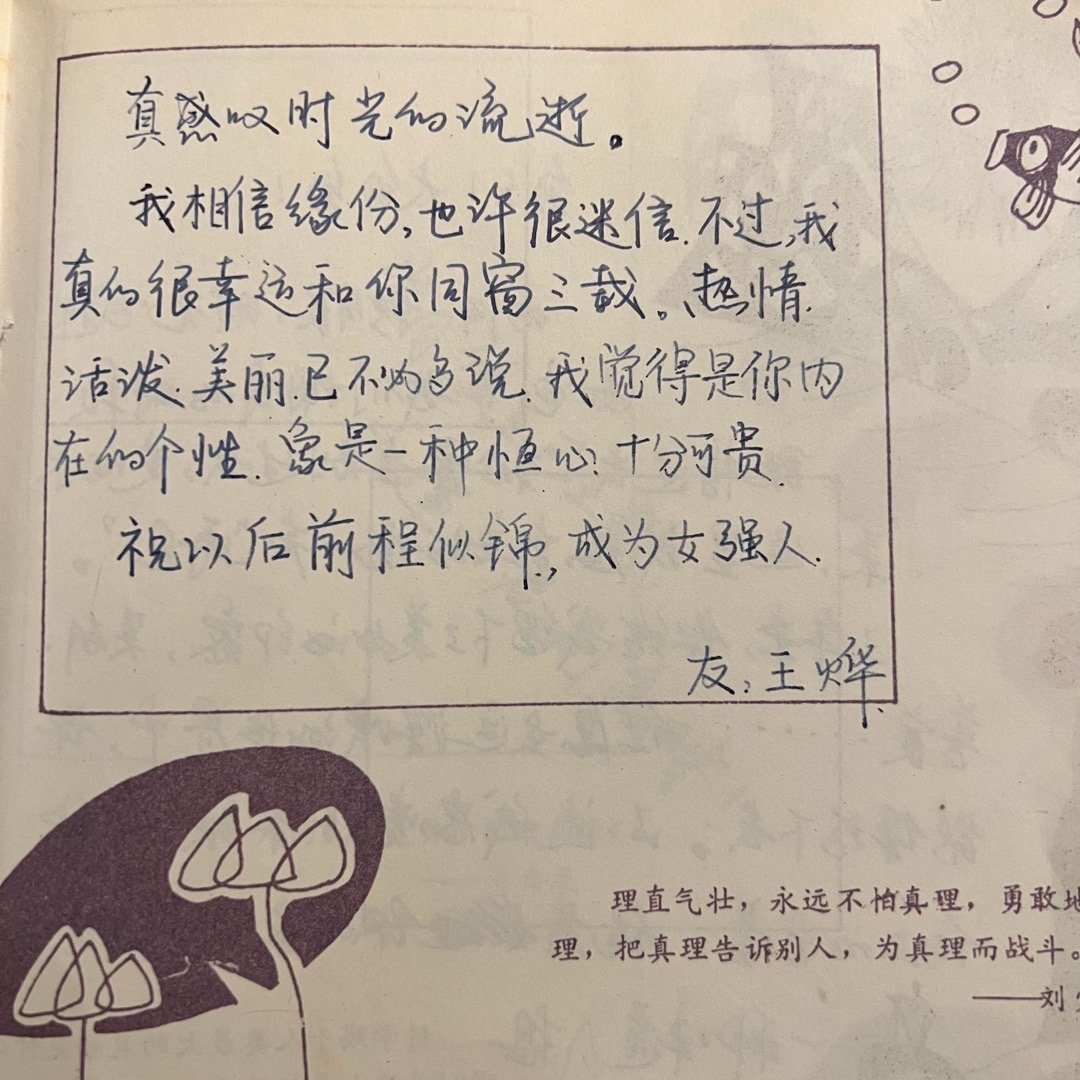 真感叹时光的流逝。
我相信缘份,也许很迷信.不过,我
真的很幸运和你同窗三载。、热情.
活泼.美丽.已不必多说.我觉得是你内
在的个性.象是一种恒心:十分可贵.
祝以后前程似锦,成为女强人.
友:王烨
理直气壮，永远不怕真理，勇敢地
理，把真理告诉别人，为真理而战斗。
——刘